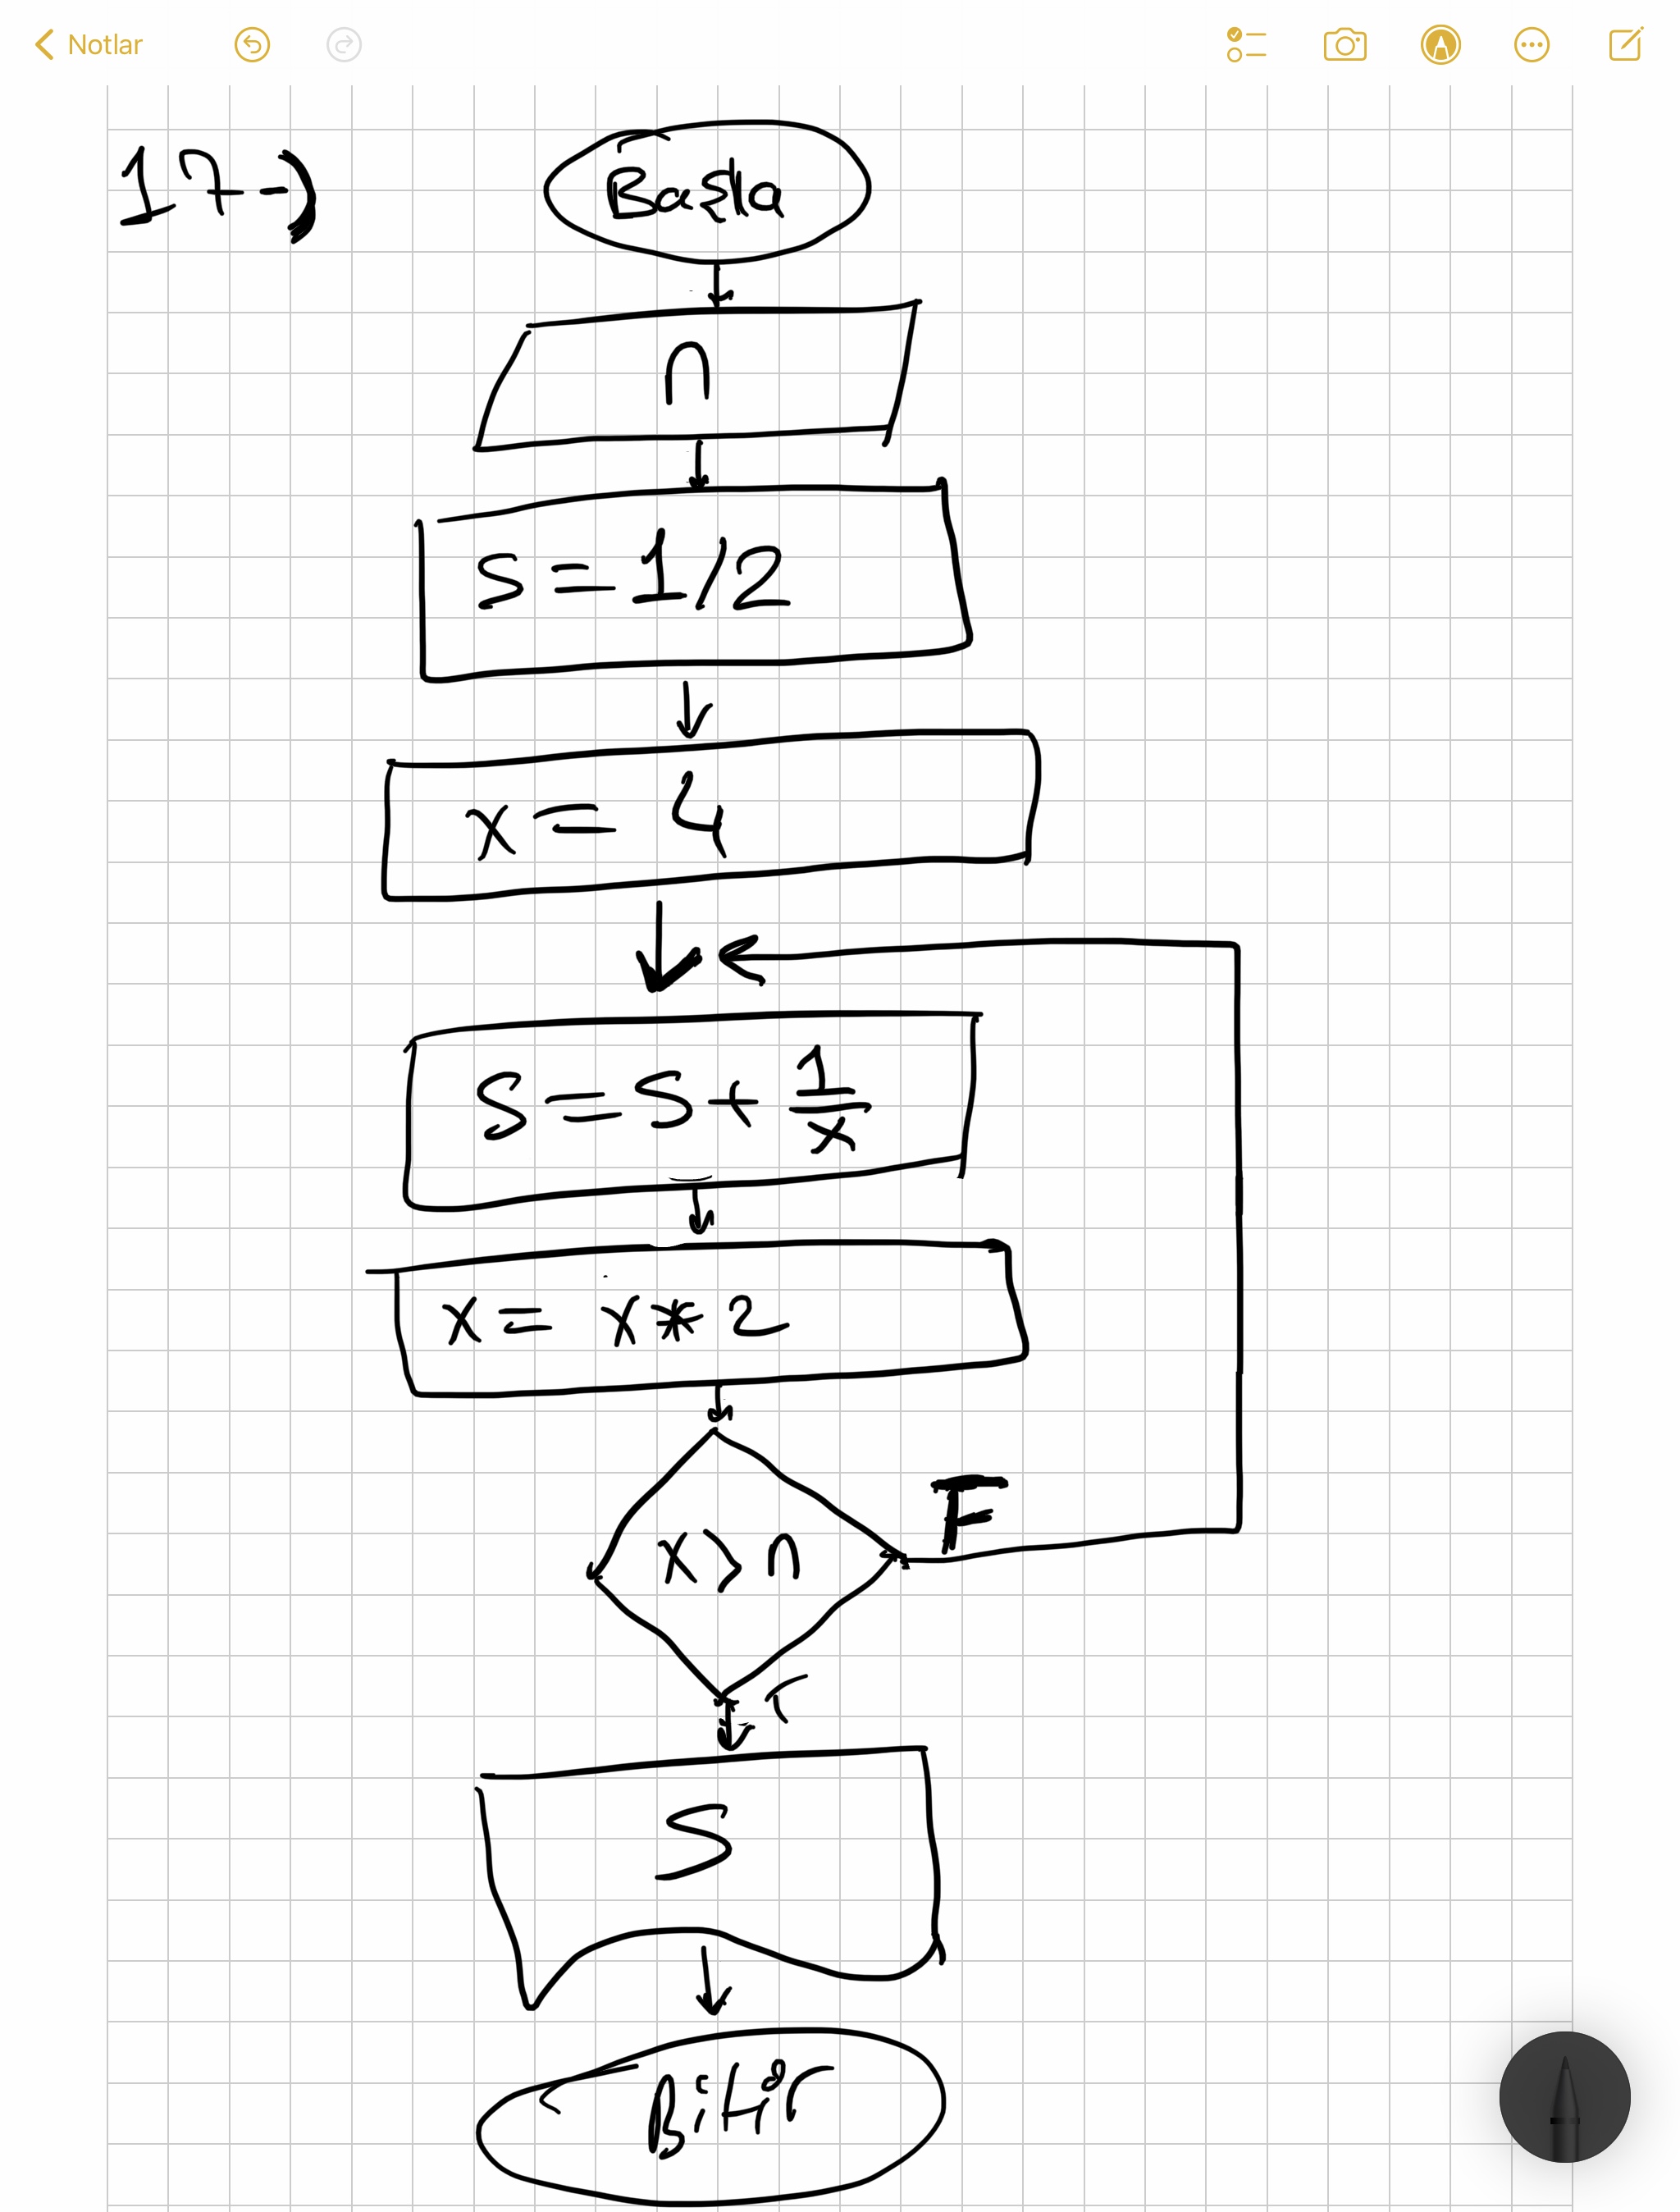 Notlar
17-)
Başla
n
S = 1/2
x = 4
S = S + 1/x
x = x * 2
x > n
F
T
S
Bitir